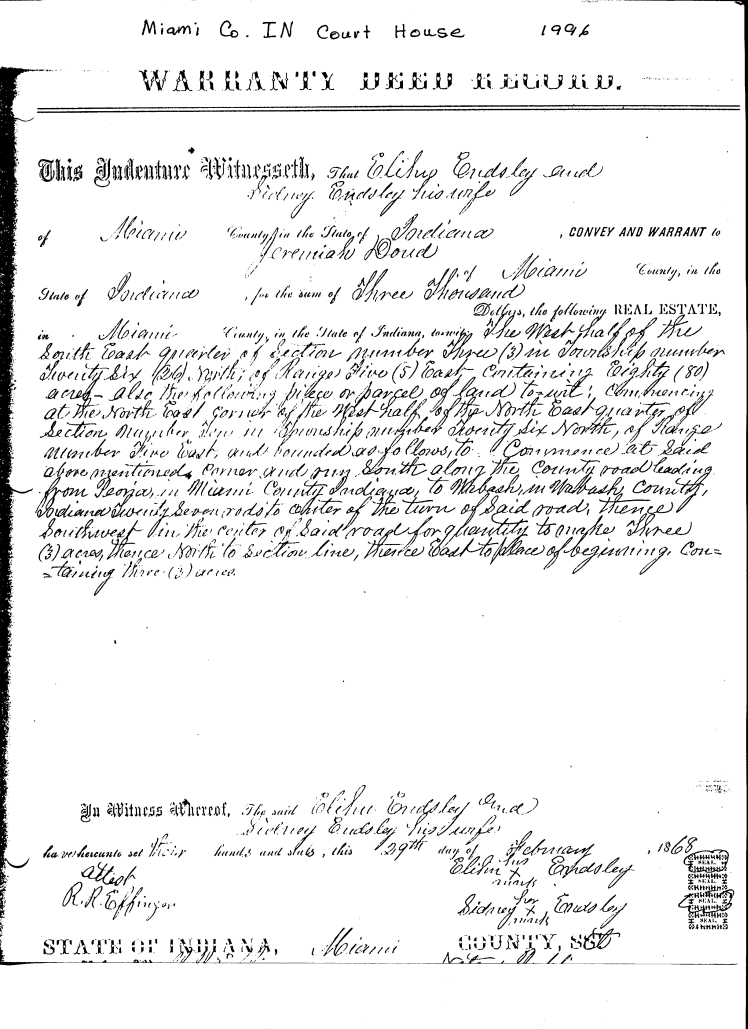 Miami Co. IN Court House 1996
WARRANTY DEED RECORD.
This Indenture Witnesseth, That Elihu Endsley and
Sidney Endsley his wife
of Miami County, in the State of Indiana , CONVEY AND WARRANT to
Jeremiah Doud
of Miami County, in the
State of Indiana , for the sum of Three Thousand
Dollars, the following REAL ESTATE,
in Miami County, in the State of Indiana, to-wit: The West half of the
South East quarter of Section number Three (3) in Township number
Twenty Six (26) North, of Range Five (5) East, Containing Eighty (80)
acres – also the following piece or parcel of land to wit; Commencing
at the North East corner of the West half of the North East quarter of
Section number Ten in Township number Twenty six North, of Range
number Five East, and bounded as follows, to Commence at Said
above mentioned corner and run South along the County road leading
from Peoria, in Miami County Indiana, to Wabash, in Wabash County,
Indiana Twenty Seven rods to center of the turn of Said road, thence
Southwest in the center of Said road for quantity to make Three
(3) acres, thence North to Section line, thence East to place of beginning. Con=
=taining three (3) acres.
In Witness Whereof, The said Elihu Endsley and
Sidney Endsley his wife
have hereunto set their hands and seals, this 29th day of February , 1868
attest Elihu his x mark Endsley SEAL.
R. R. Effinger Sidney her x mark Endsley SEAL.
STATE OF INDIANA, Miami COUNTY, SS